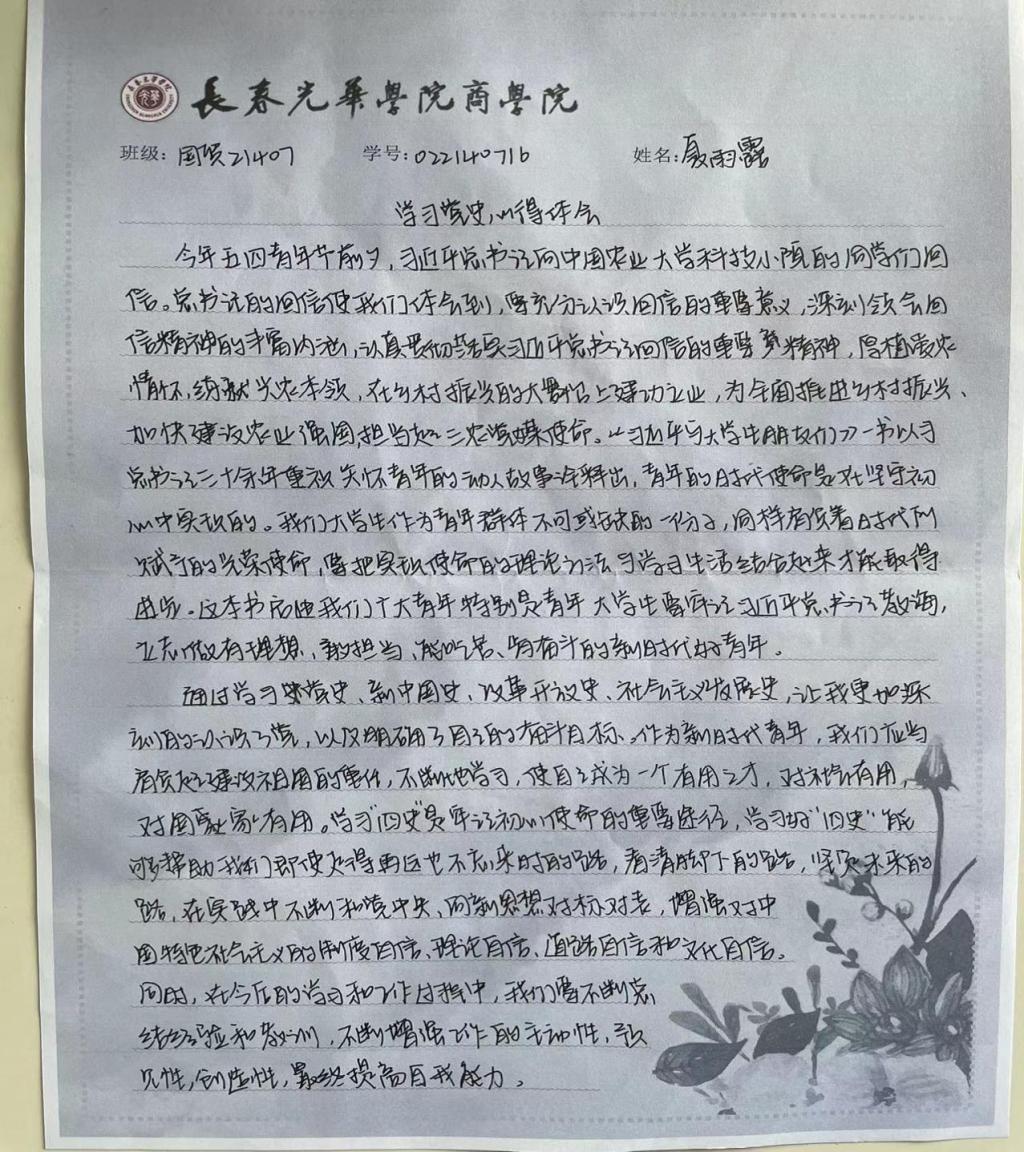 長春光華學院商學院
班级：国贸21407 学号：022140716 姓名：夏雨露
学习党史心得体会
今年五四青年节前夕，习近平总书记向中国农业大学科技小院的同学们回
信。总书记的回信使我们体会到，要充分认识回信的重要意义，深刻领会回
信精神的丰富内涵，认真贯彻落实习近平总书记回信的重要精神，厚植爱农
情怀，练就兴农本领，在乡村振兴的大舞台上建功立业，为全面推进乡村振兴、
加快建设农业强国，担当起三农使命。《习近平与大学生朋友们》一书以习
总书记三十余年重视关怀青年的动人故事诠释出，青年的时代使命是在坚守初
心中实现的。我们大学生作为青年群体不可或缺的一份子，同样肩负着时代所
赋予的光荣使命，要把实现使命的理论方法与学习生活结合起来才能取得
进步。这本书启迪我们广大青年特别是青年大学生要牢记习近平总书记教诲，
立志做有理想、敢担当、能吃苦、肯奋斗的新时代好青年。
通过学习党史、新中国史、改革开放史、社会主义发展史，让我更加深
刻的认识了党，以及明确了自己的奋斗目标。作为新时代青年，我们应当
肩负起建设祖国的责任，不断地学习，使自己成为一个有用之才，对社会有用，
对国家有用。学习“四史”是牢记初心使命的重要途径，学习好“四史”能
够帮助我们即使走得再远也不忘来时的路，看清脚下的路，坚定未来的
路，在实践中不断和党中央、向新思想对标对表，增强对中
国特色社会主义的制度自信、理论自信、道路自信和文化自信。
同时，在今后的学习和工作过程中，我们要不断总
结经验和教训，不断增强工作的主动性，预
见性，创造性，最终提高自我能力。